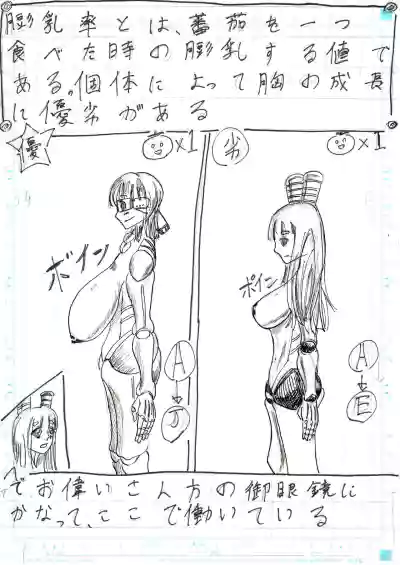 膨乳率とは、蕃茄を一つ
食べた時の膨乳する値で
ある。個体によって胸の成長
に優劣がある
優
×1
劣
×1
ボイン
ポイン
A
J
A
E
でお偉いさん方の御眼鏡に
かなって、ここで働いている